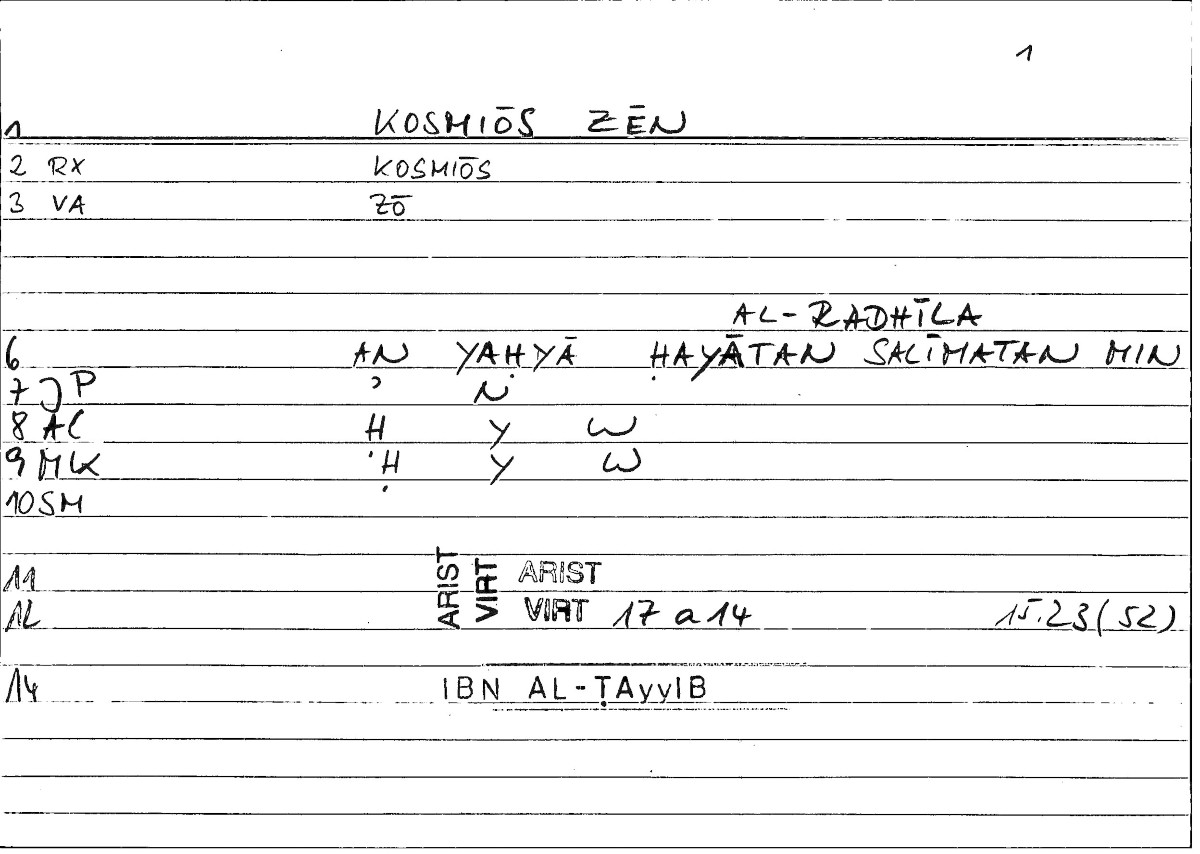 1
1 KOSMIŌS ZĒN
2 RX KOSMIŌS
3 VA ZŌ
AL-RADHĪLA
6 AN YAḤYĀ ḤAYĀTAN SALĪMATAN MIN
7 JP ʾ N
8 AC Ḥ Y W
9 MK Ḥ Y W
10 SM
11 ARIST
12 VIRT 17 a 14 15.23 (52)
ARIST
VIRT
14 IBN AL-ṬAyyIB